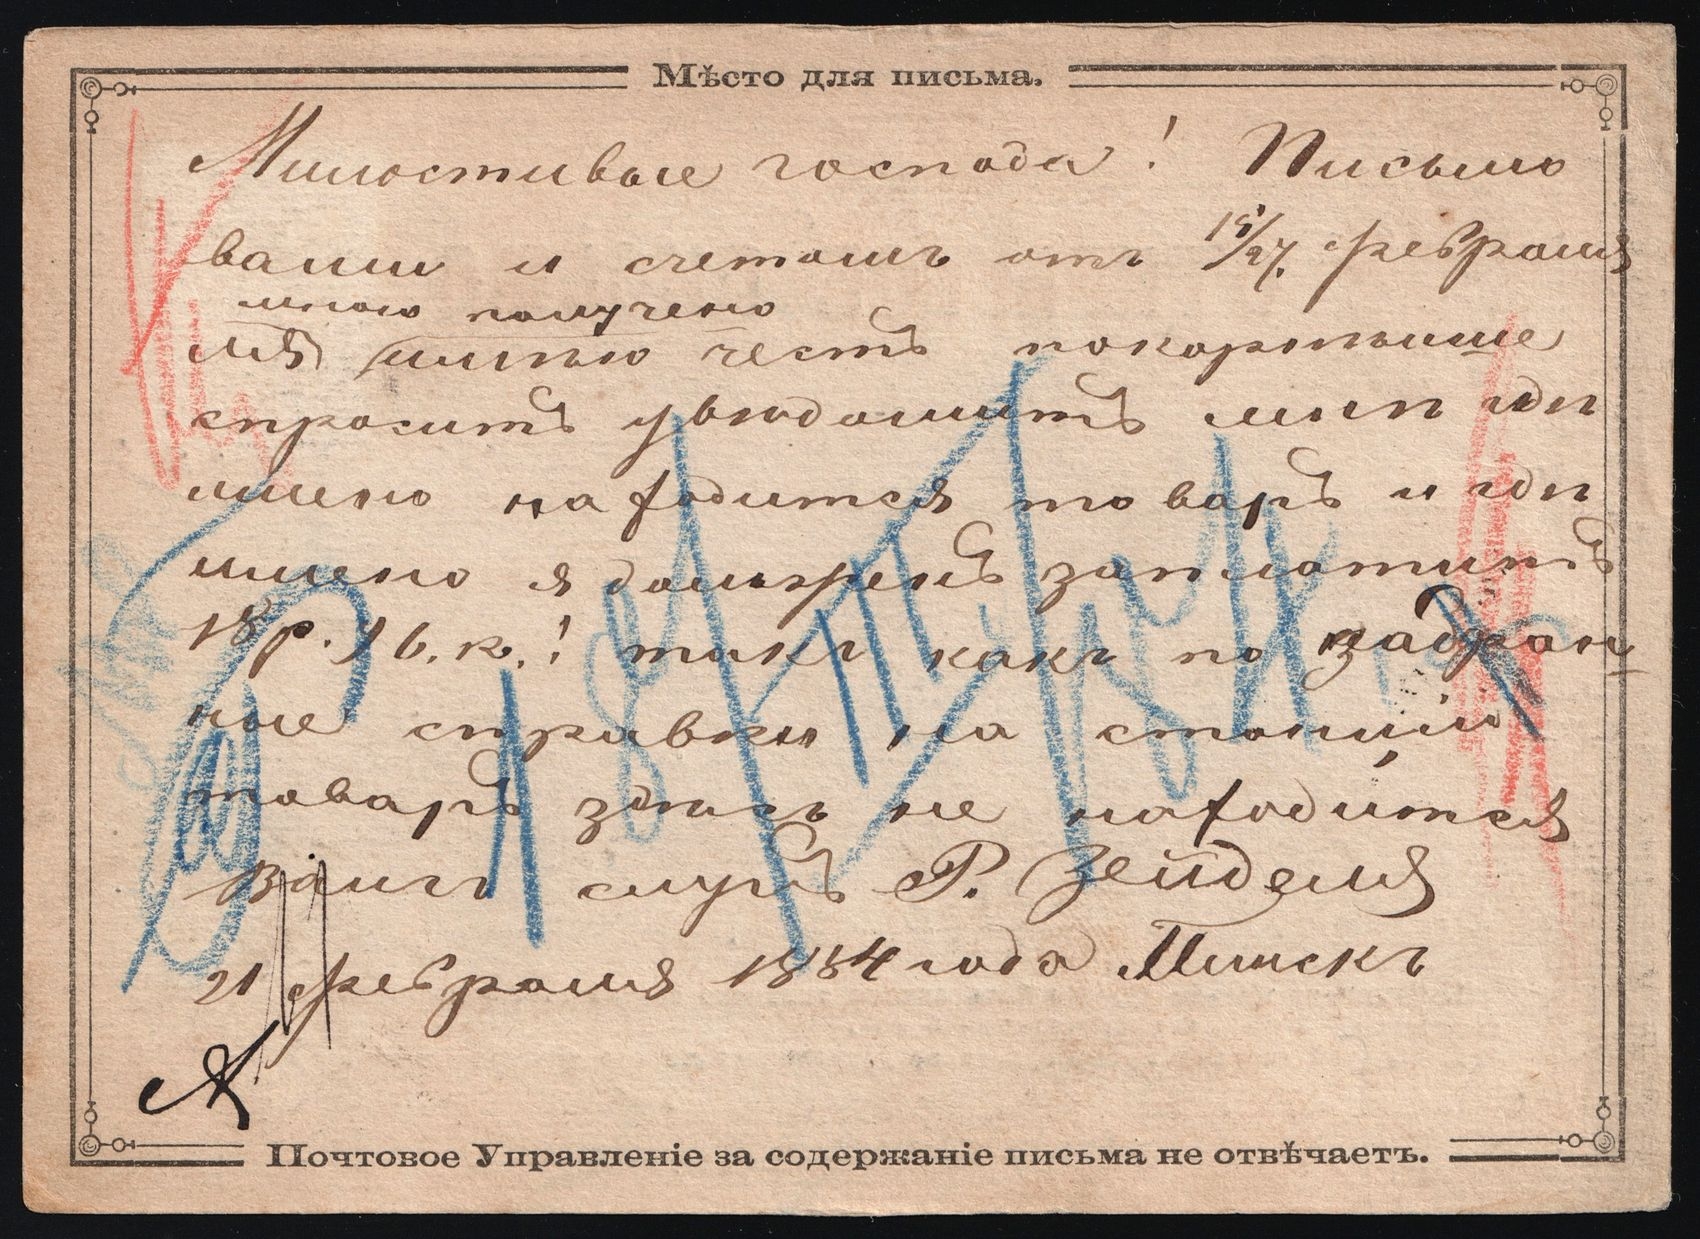 Мѣсто для письма.
Милостивые господа! Письмо
ваши и счетомъ отъ 15/27. февраля
мною получено
имѣю честь покорнѣише
спросить увѣдомить мнѣ гдѣ
имено находится товаръ и гдѣ
имено я долженъ заплатить
18 р. 16. к.! такъ какъ по забран
ные справки на станціи
товаръ здѣсь не находится
Вашъ слуга Р. Зейделя
21 февраля 1884 года Минскъ
Почтовое Управленіе за содержаніе письма не отвѣчаетъ.